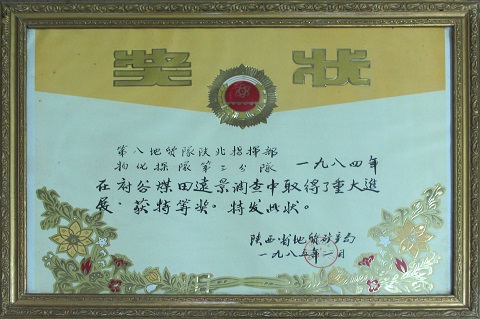 奖状
第八地质队陕北指挥部
物化探队第二分队 一九八四年
在府谷煤田远景调查中取得了重大进
展·获特等奖。特发此状。
陕西省地质矿产局
一九八五年一月日